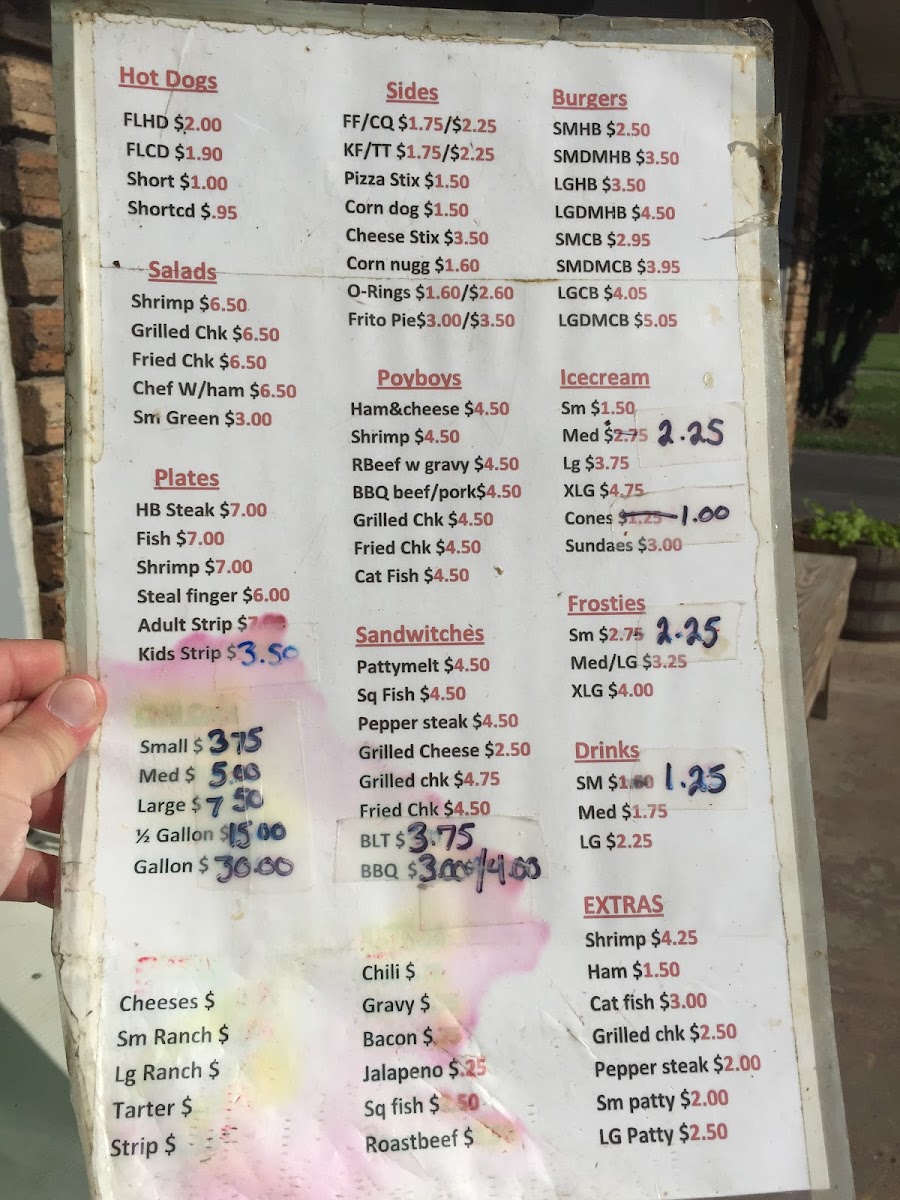 Hot Dogs
FLHD $2.00
FLCD $1.90
Short $1.00
Shortcd $.95
Salads
Shrimp $6.50
Grilled Chk $6.50
Fried Chk $6.50
Chef W/ham $6.50
Sm Green $3.00
Plates
HB Steak $7.00
Fish $7.00
Shrimp $7.00
Steal finger $6.00
Adult Strip $7
Kids Strip $3.50
Small $ 3 75
Med $ 5.00
Large $ 7 50
½ Gallon $15.00
Gallon $ 30.00
Cheeses $
Sm Ranch $
Lg Ranch $
Tarter $
Strip $
Sides
FF/CQ $1.75/$2.25
KF/TT $1.75/$2.25
Pizza Stix $1.50
Corn dog $1.50
Cheese Stix $3.50
Corn nugg $1.60
O-Rings $1.60/$2.60
Frito Pie$3.00/$3.50
Poyboys
Ham&cheese $4.50
Shrimp $4.50
RBeef w gravy $4.50
BBQ beef/pork$4.50
Grilled Chk $4.50
Fried Chk $4.50
Cat Fish $4.50
Sandwitches
Pattymelt $4.50
Sq Fish $4.50
Pepper steak $4.50
Grilled Cheese $2.50
Grilled chk $4.75
Fried Chk $4.50
BLT $3.75
BBQ $3.00/4.00
Chili $
Gravy $
Bacon $
Jalapeno $.25
Sq fish $ 50
Roastbeef $
Burgers
SMHB $2.50
SMDMHB $3.50
LGHB $3.50
LGDMHB $4.50
SMCB $2.95
SMDMCB $3.95
LGCB $4.05
LGDMCB $5.05
Icecream
Sm $1.50
Med $2.75 2.25
Lg $3.75
XLG $4.75
Cones $1.25 1.00
Sundaes $3.00
Frosties
Sm $2.75 2.25
Med/LG $3.25
XLG $4.00
Drinks
SM $1.60 1.25
Med $1.75
LG $2.25
EXTRAS
Shrimp $4.25
Ham $1.50
Cat fish $3.00
Grilled chk $2.50
Pepper steak $2.00
Sm patty $2.00
LG Patty $2.50